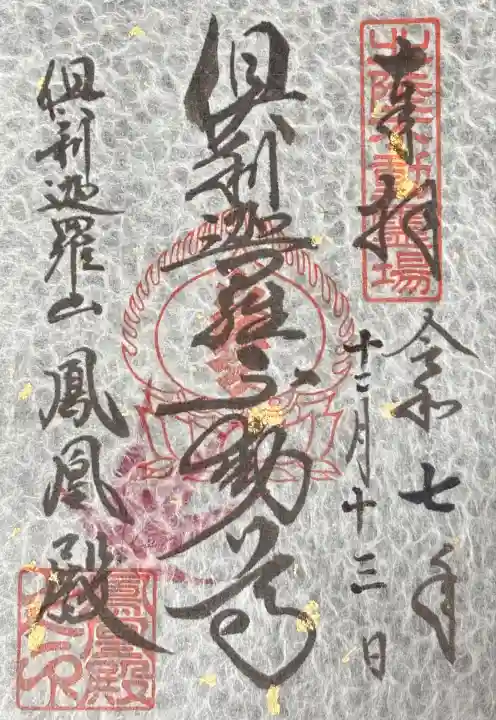 奉拝
北陸不動霊場
令和七年
十二月十三日
倶利迦羅不動尊
倶利迦羅山 鳳凰殿